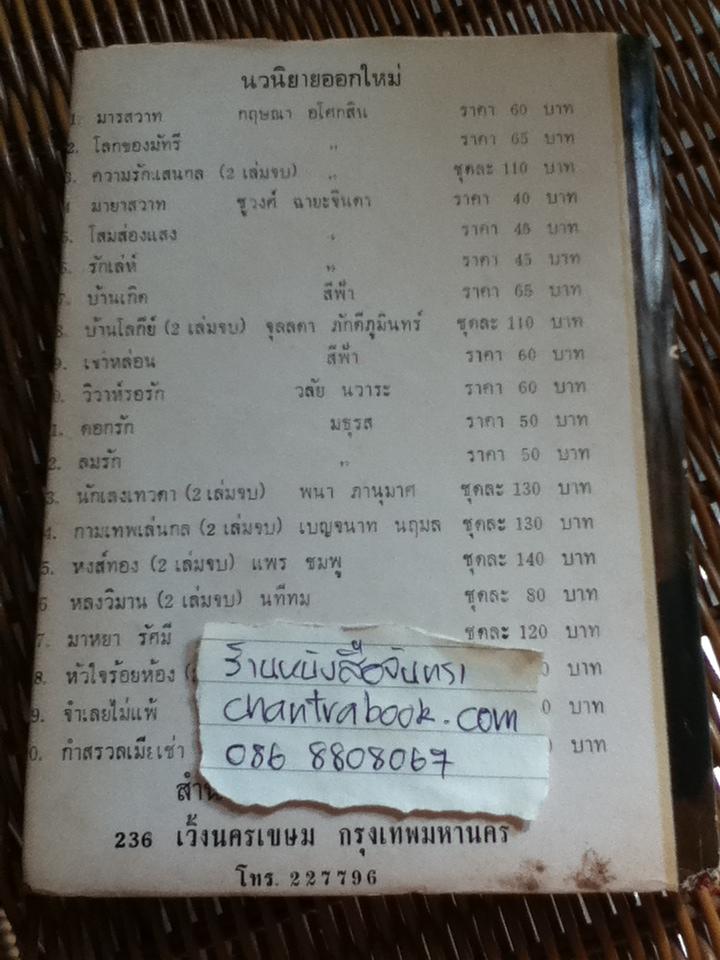 นวนิยายออกใหม่
1. มารสวาท กฤษณา อโศกสิน ราคา 60 บาท
2. โลกของมัทรี " ราคา 65 บาท
3. ความรักแสนกล (2 เล่มจบ) " ชุดละ 110 บาท
4 มายาสวาท ชูวงศ์ ฉายะจินดา ราคา 40 บาท
5. โสมส่องแสง " ราคา 45 บาท
6. รักเล่ห์ " ราคา 45 บาท
7. บ้านเกิด สีฟ้า ราคา 65 บาท
8. บ้านโลกีย์ (2 เล่มจบ) จุลลดา ภักดีภูมินทร์ ชุดละ 110 บาท
9. เขาหล่อน สีฟ้า ราคา 60 บาท
0. วิวาห์รอรัก วลัย นวาระ ราคา 60 บาท
1. ดอกรัก มธุรส ราคา 50 บาท
2. ลมรัก " ราคา 50 บาท
3. นักเลงเทวดา (2 เล่มจบ) พนา ภานุมาศ ชุดละ 130 บาท
4. กามเทพเล่นกล (2 เล่มจบ) เบญจนาท นฤมล ชุดละ 130 บาท
5. หงส์ทอง (2 เล่มจบ) แพร ชมพู ชุดละ 140 บาท
6 หลงวิมาน (2 เล่มจบ) นทีทม ชุดละ 80 บาท
7. มาหยา รัศมี ชุดละ 120 บาท
8. หัวใจร้อยห้อง ( 0 บาท
9. จำเลยไม่แพ้ 0 บาท
0. กำสรวลเมียเช่า บาท
ร้านหนังสือจันทรา
chantrabook.com
086 8808067
236 เวิ้งนครเขษม กรุงเทพมหานคร
โทร. 227796